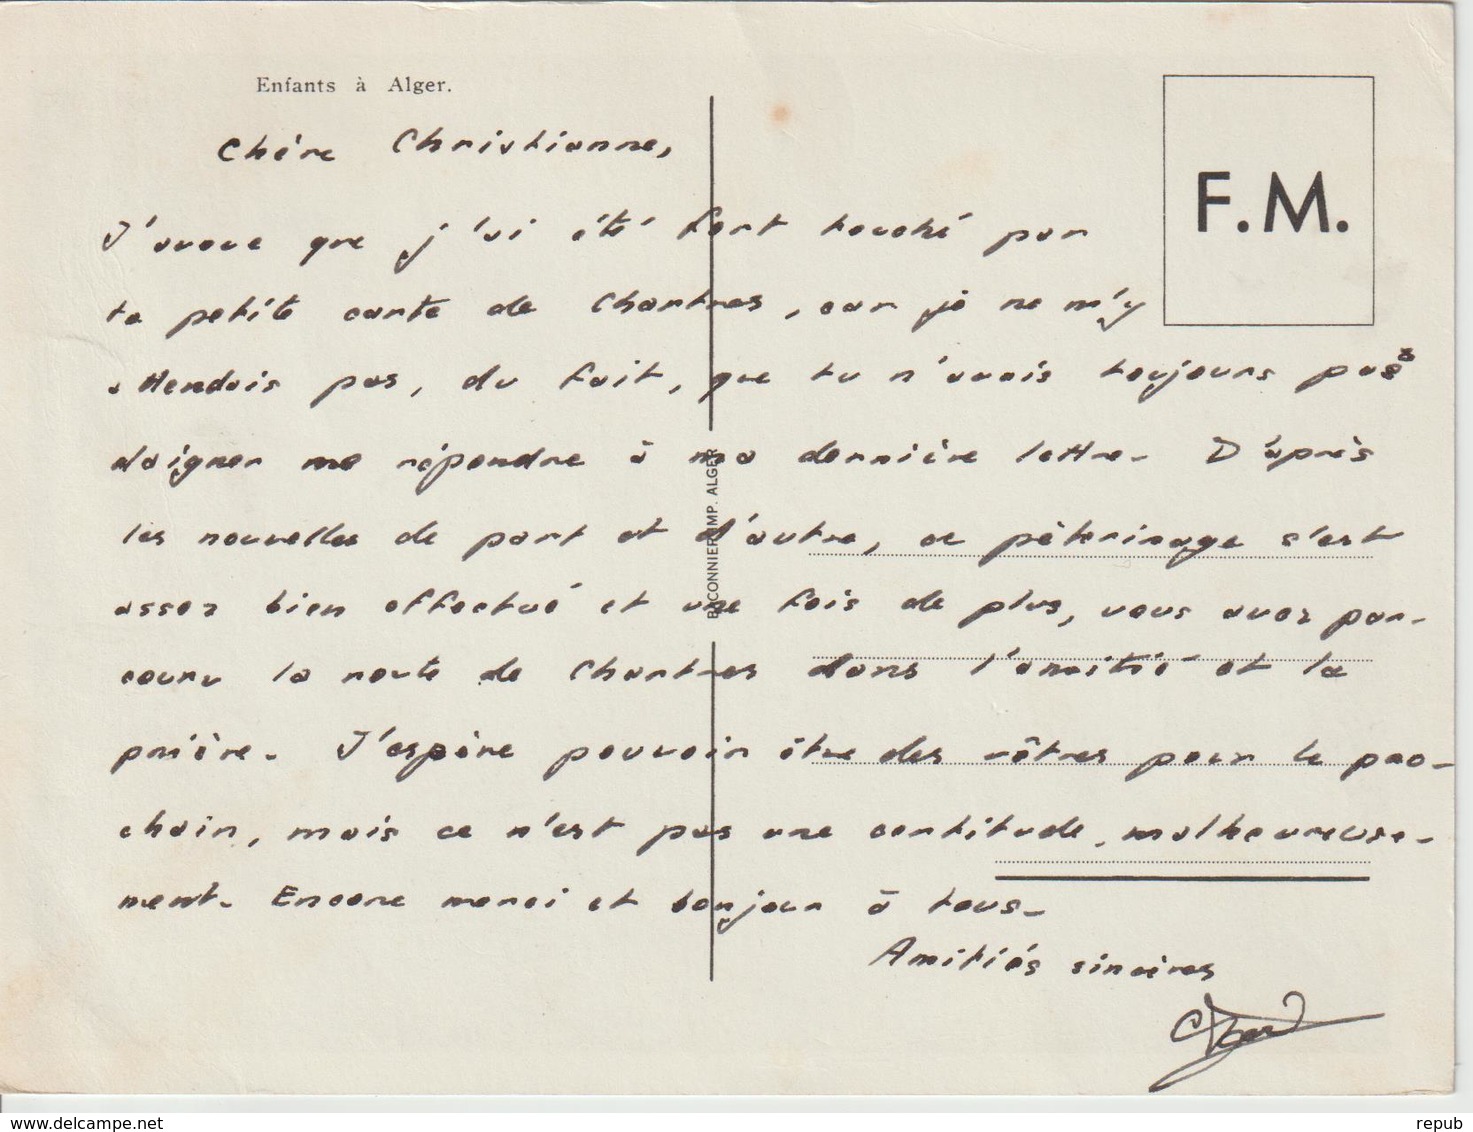 Enfants à Alger.
F.M.
Chère Christianne,
J'avoue que j'ai été fort touché par
ta petite carte de Chartres, car je ne m'y
attendais pas, du fait, que tu n'avais toujours pas
daigner me répondre à ma dernière lettre. D'après
les nouvelles de part et d'autre, ce pèterinage s'est
assez bien effectué et une fois de plus, vous avez par-
couru la route de Chartres dans l'amitié et la
prière. J'espère pouvoir être des vôtres pour le pro-
chain, mais ce n'est pas une certitude, malheureuse-
ment. Encore merci et bonjour à tous.
Amitiés sincères
BACONNIER IMP. ALGER
www.delcampe.net
repub